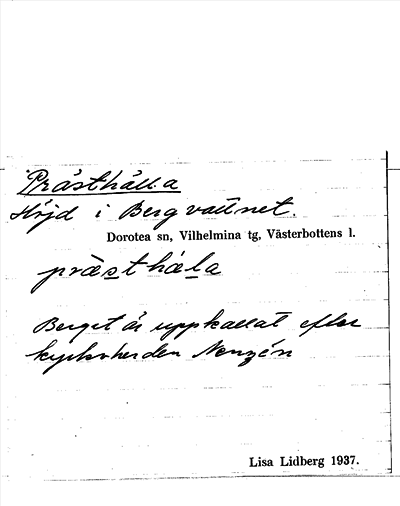 Prästhälla
Höjd i Bergvattnet.
Dorotea sn, Vilhelmina tg, Västerbottens l.
prästhäla
Berget är uppkallat efter
kyrkoherden Nenzén
Lisa Lidberg 1937.